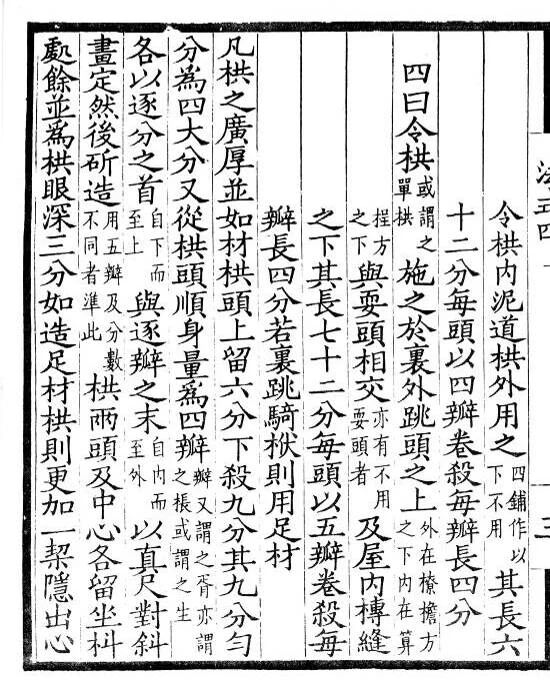 法式四
三
令栱内泥道栱外用之四鋪作以下不用其長六
十二分每頭以四瓣卷殺每瓣長四分
四曰令栱或謂之單栱施之於裏外跳頭之上外在橑檐方之下内在算
桯方之下與耍頭相交亦有不用耍頭者及屋内槫縫
之下其長七十二分每頭以五瓣卷殺每
瓣長四分若裏跳騎栿則用足材
凡栱之廣厚並如材栱頭上留六分下殺九分其九分勻
分爲四大分又從栱頭順身量爲四瓣瓣又謂之胥亦謂之棖或謂之生
各以逐分之首自下而至上與逐瓣之末自内而至外以真尺對斜
畫定然後斫造用五瓣及分數不同者準此栱兩頭及中心各留坐枓
處餘並爲栱眼深三分如造足材栱則更加一栔隱出心